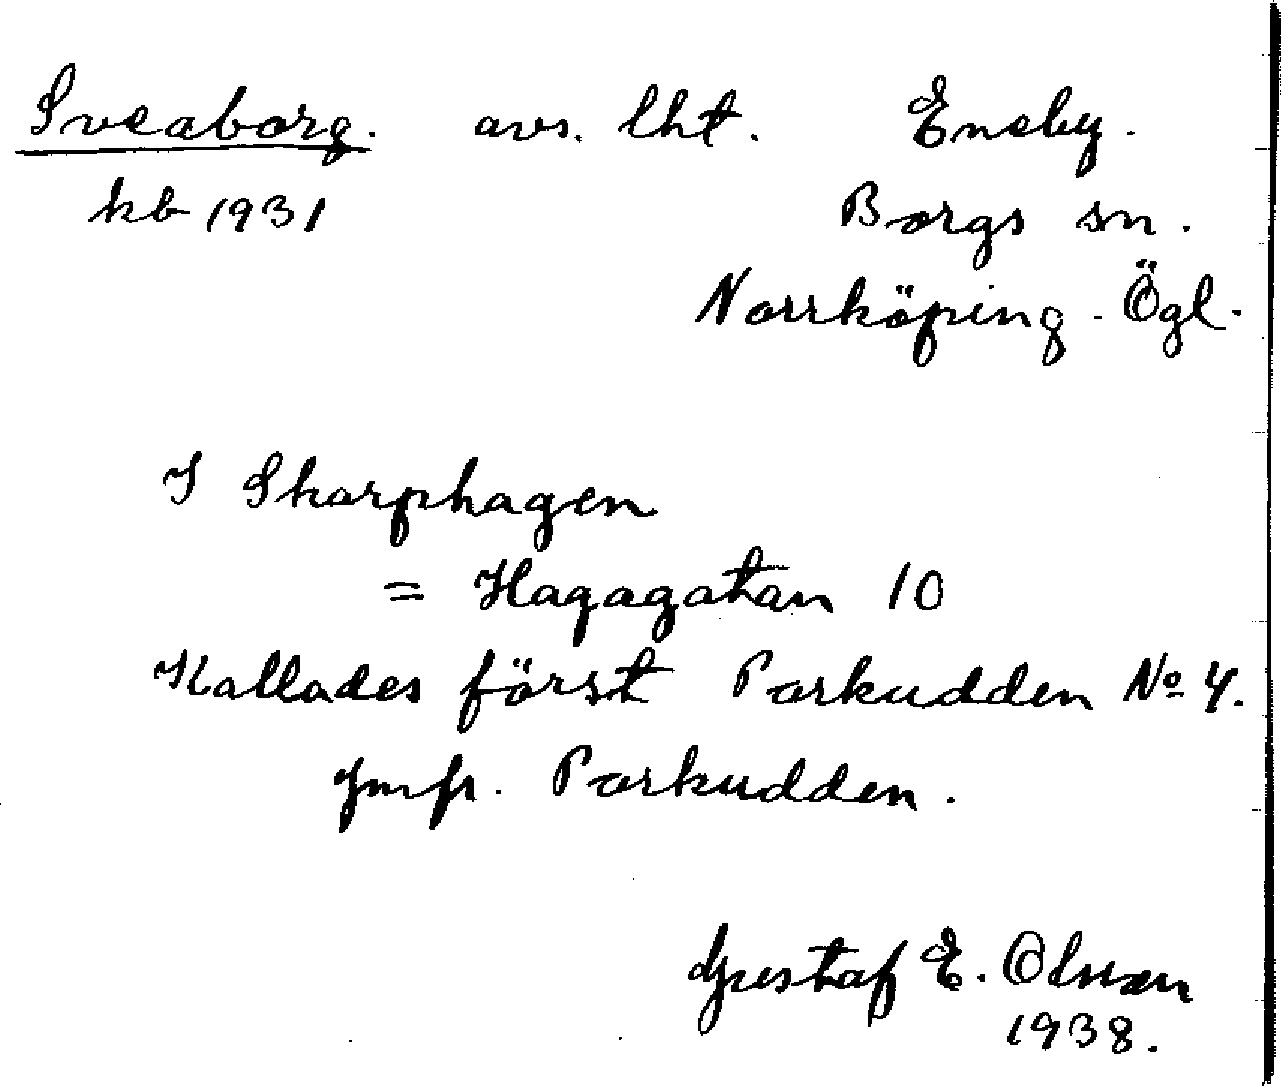 Sveaborg. avs. lht. Eneby.
kb 1931 Borgs sn.
Norrköping. Ögl.
I Skarphagen
= Hagagatan 10
Kallades först Parkudden No 4.
Jmfr. Parkudden.
Gustaf E. Olsson
1938.